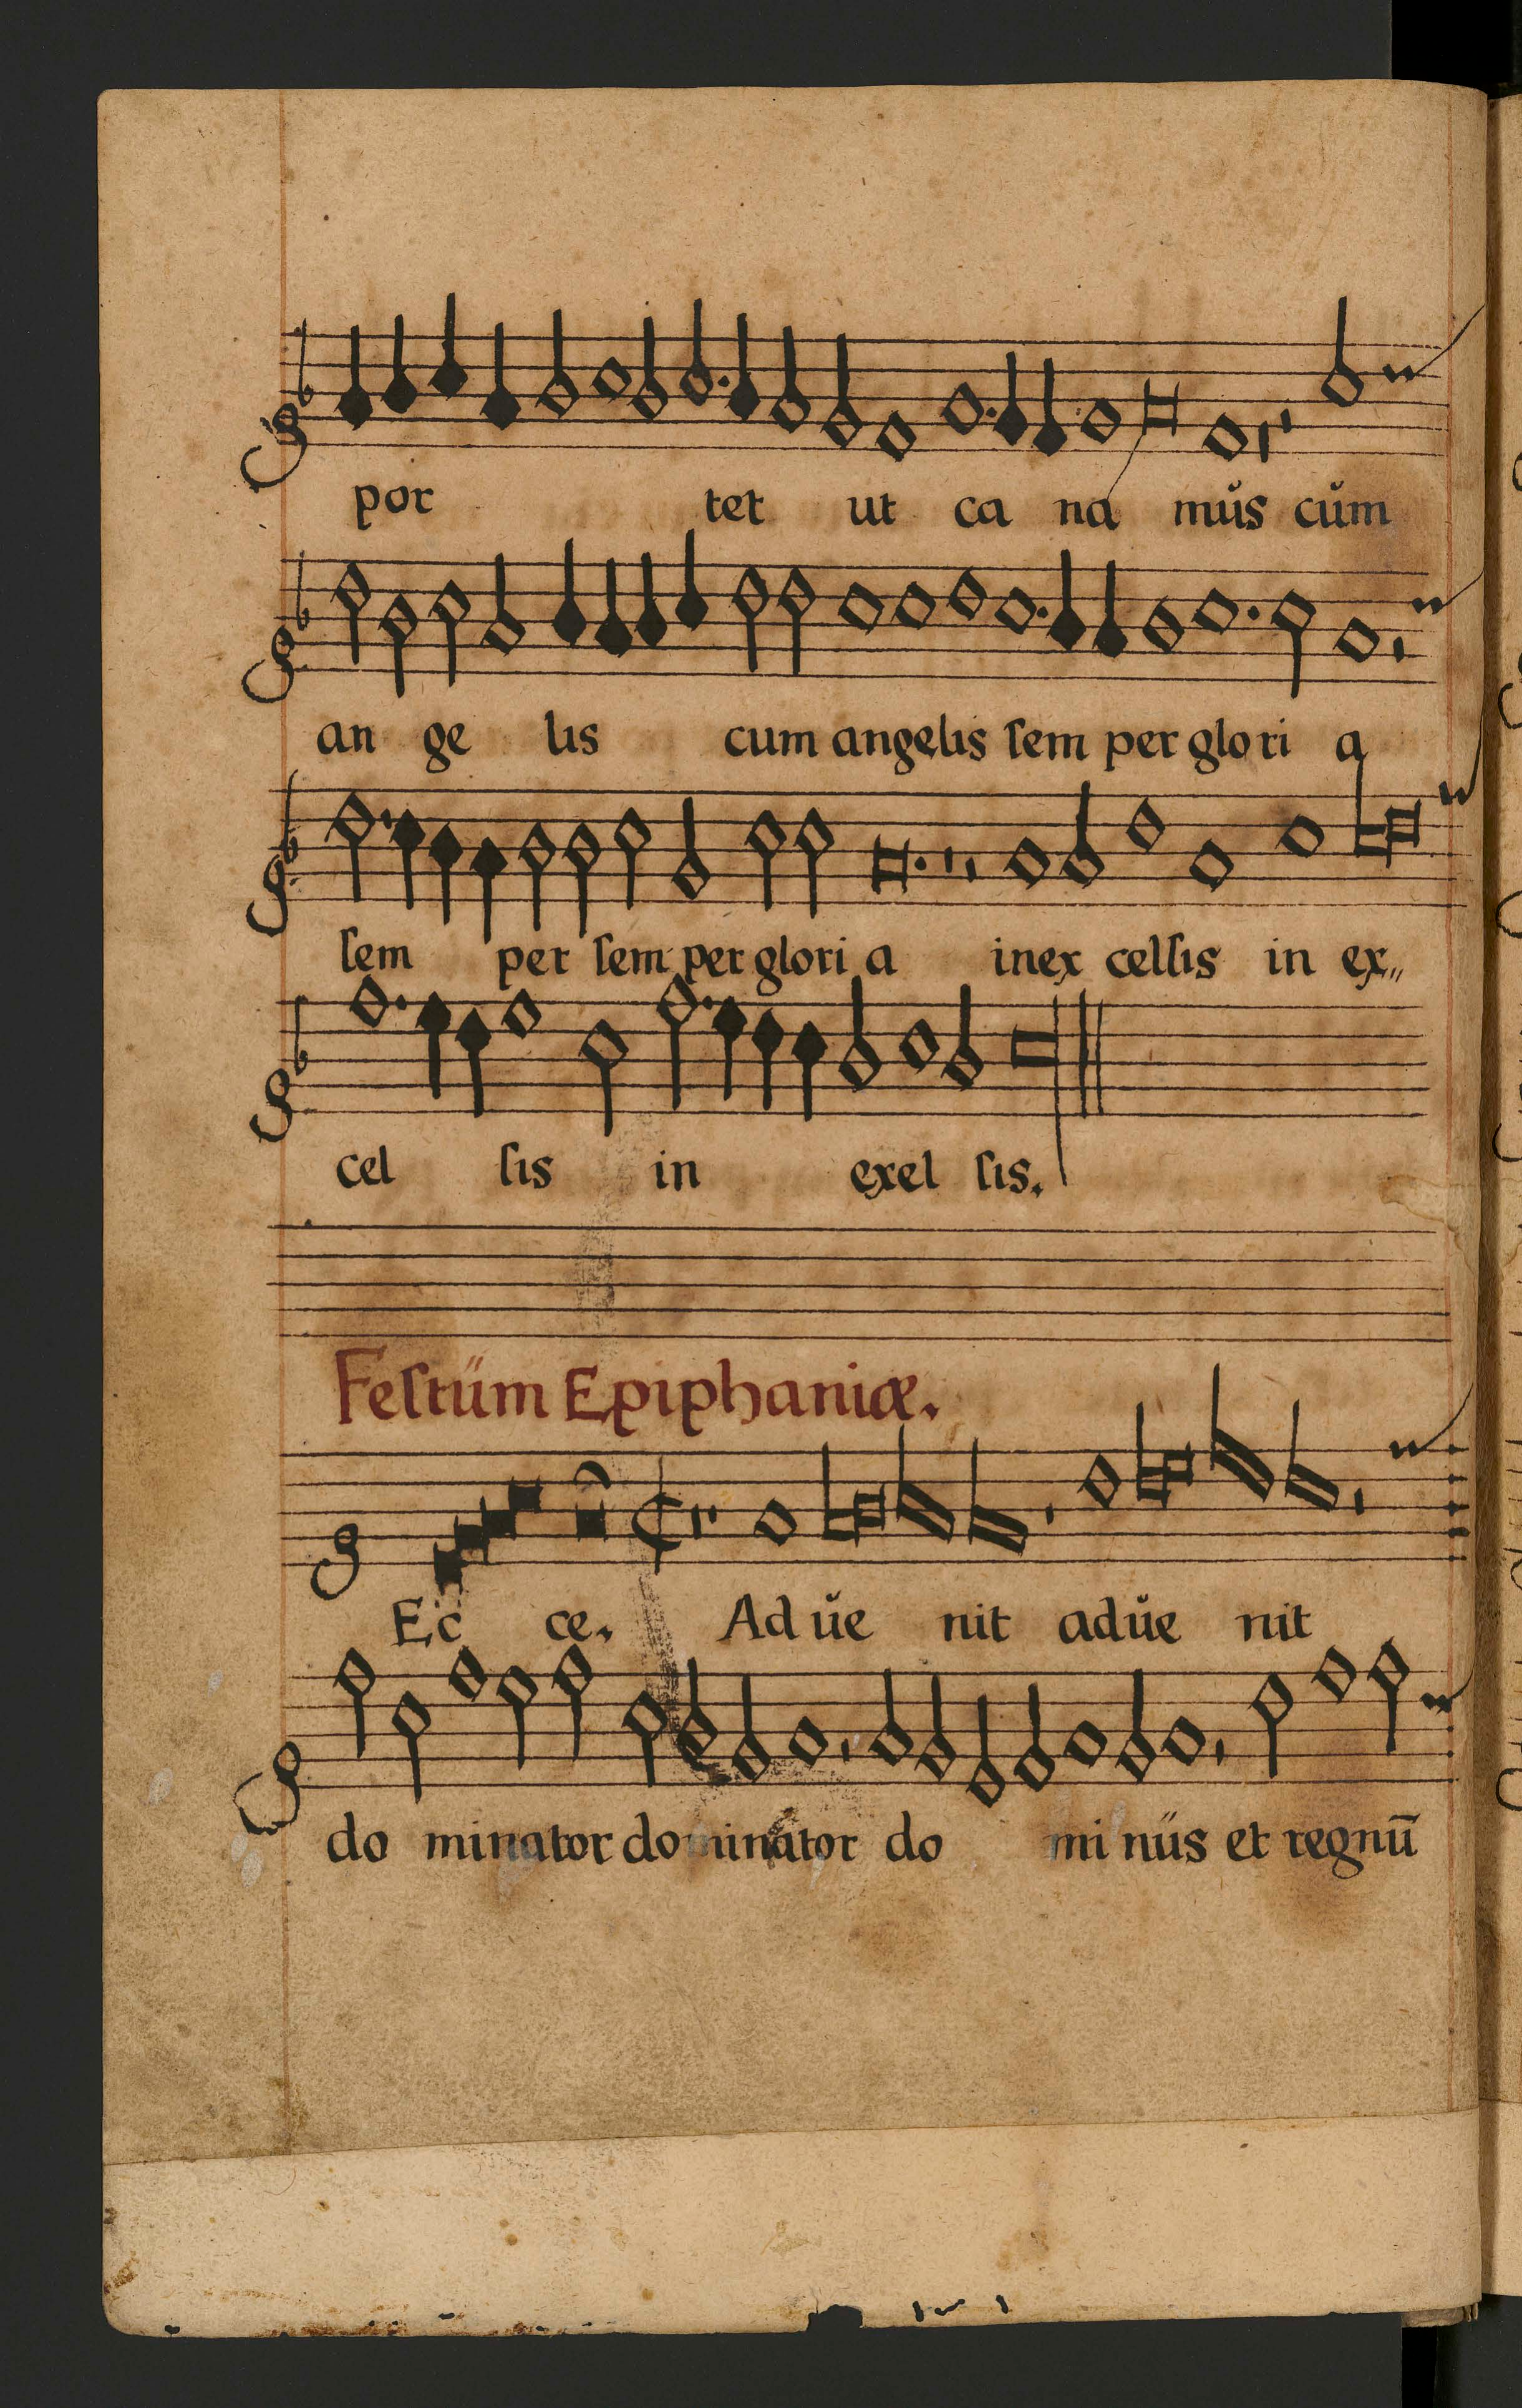 por tet ut ca na mus cum
an ge lis cum angelis ſem per glo ri a
ſem per ſem per glori a inex celſis in ex„
cel ſis in exel ſis.
Feſtüm Epiphaniæ.
Ec ce. Ad ue nit adue nit
do minator dominator do mi nüs et regnū